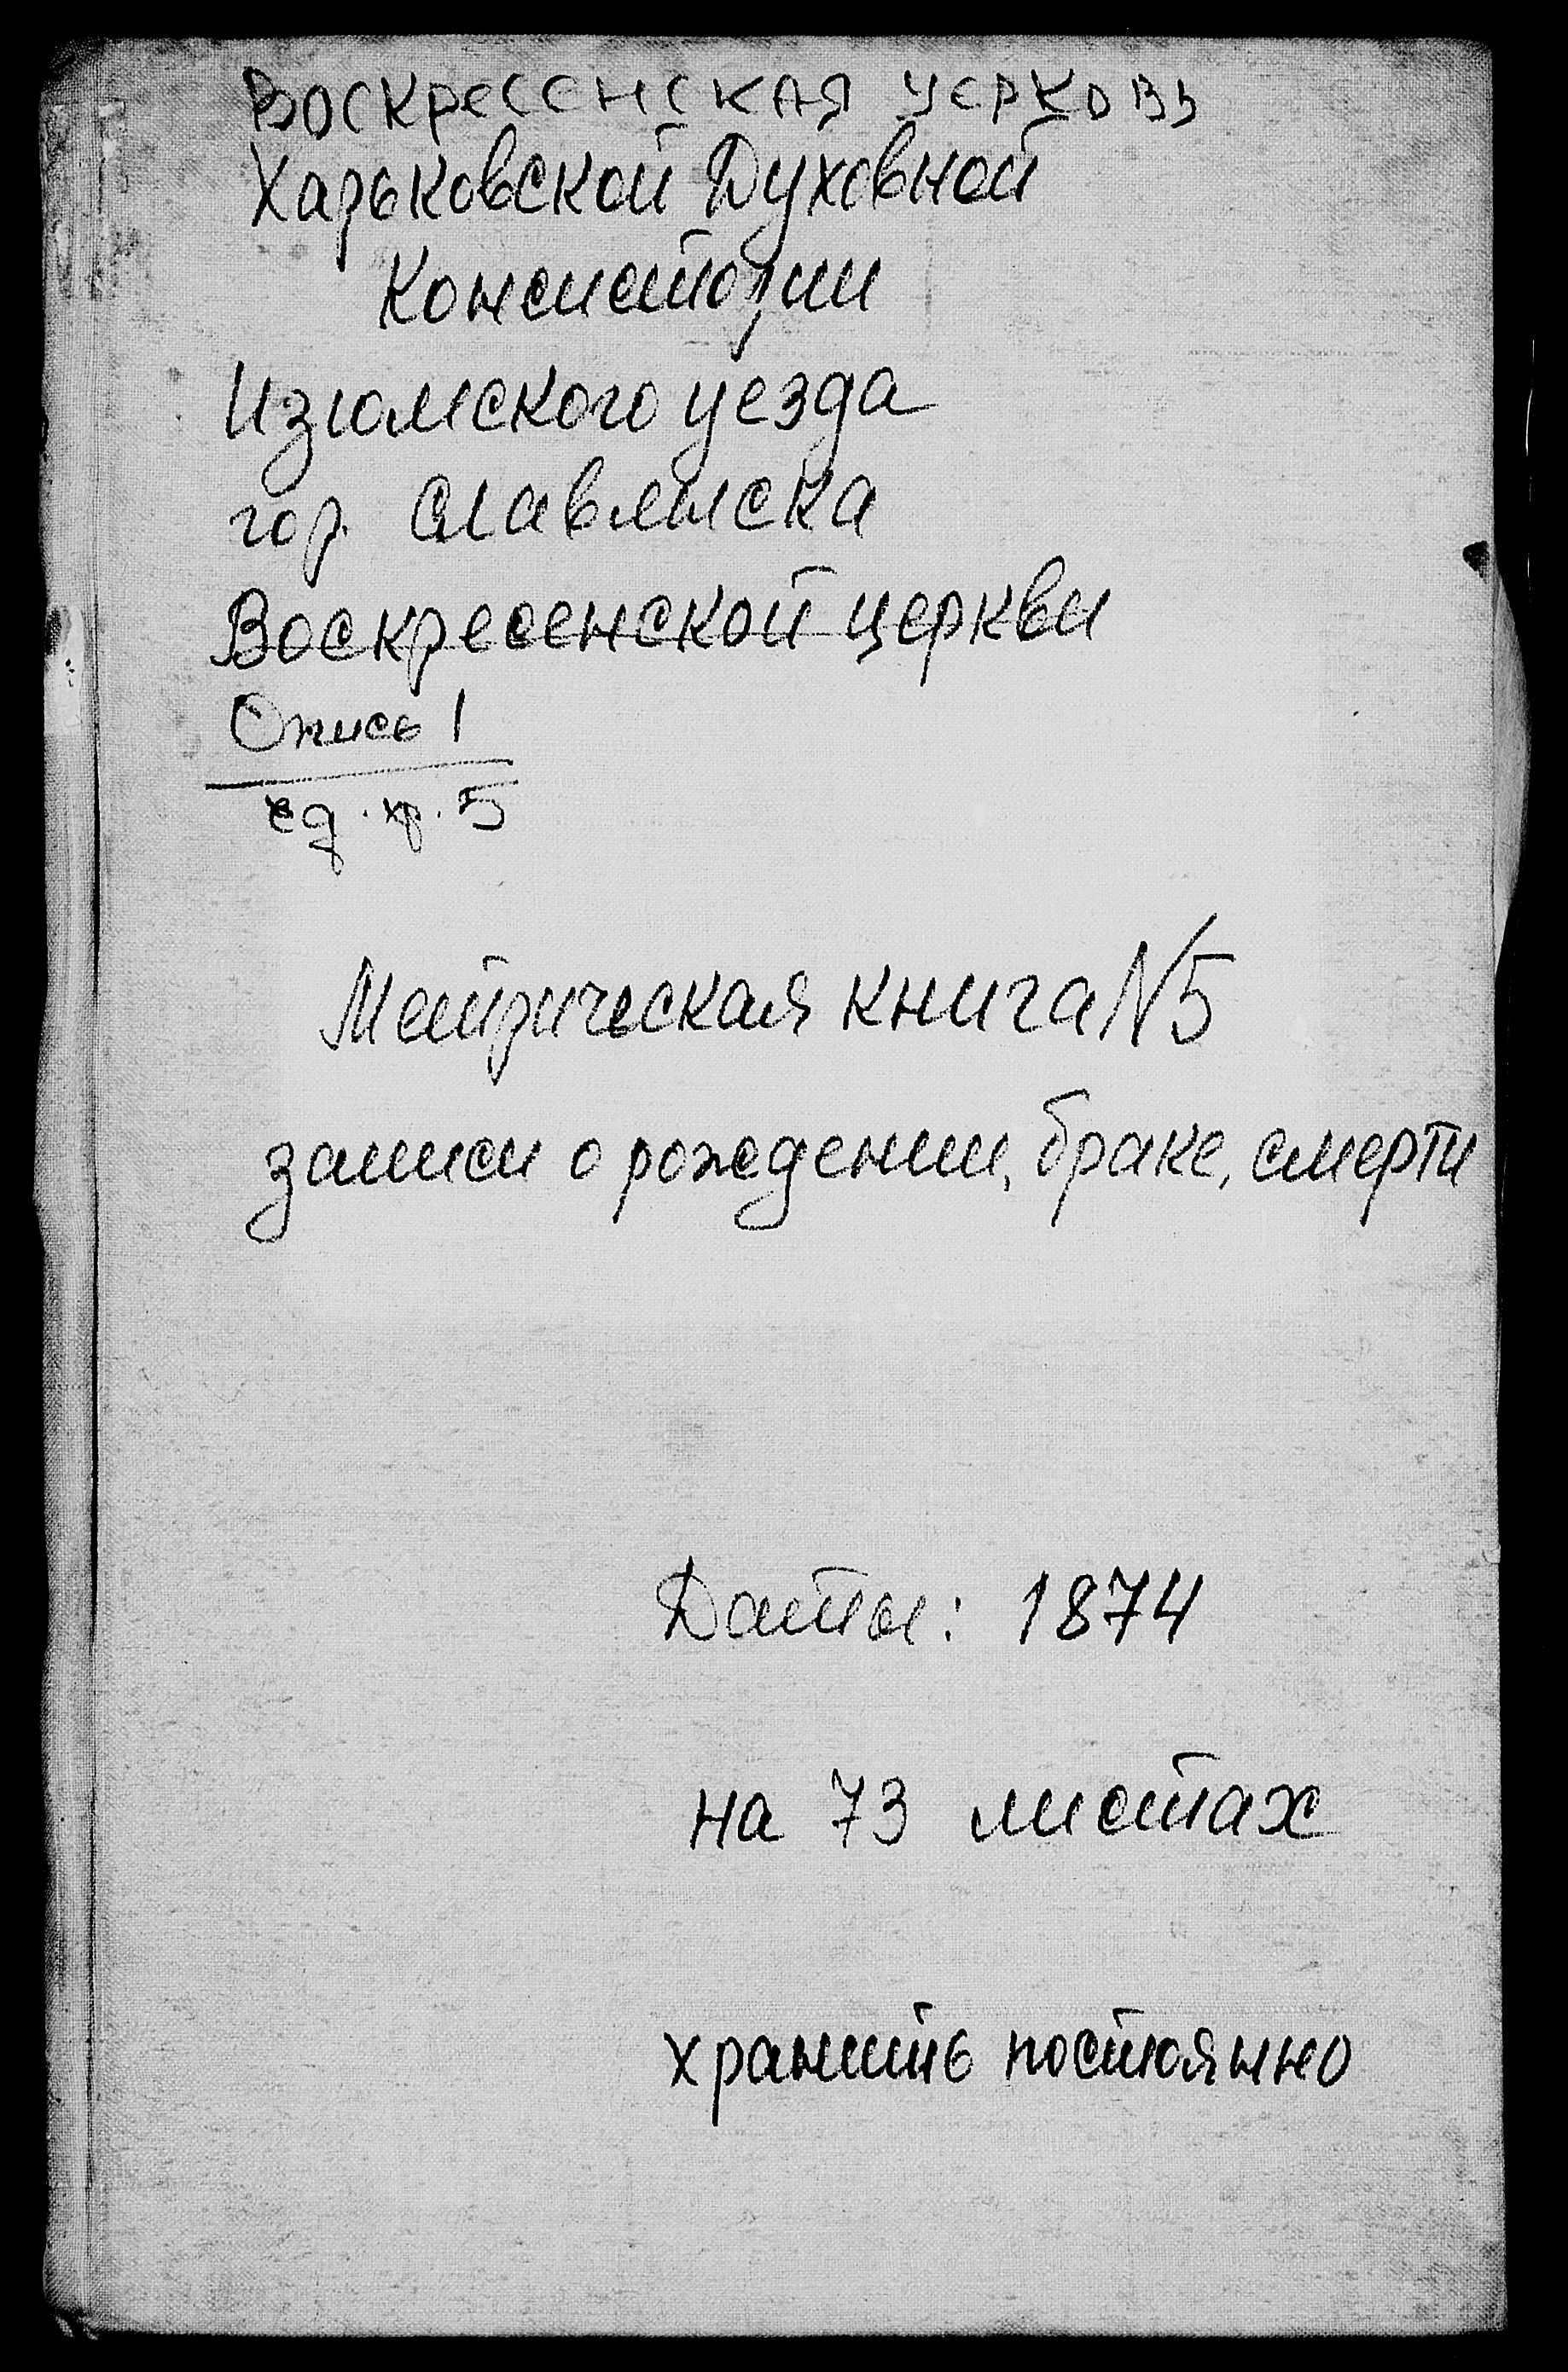 Воскресенская церковь
Харьковской Духовной
Консистории
Изюмского уезда
гор. Славянска
Воскресенской церкви
Опись 1
ед. хр. 5
Метрическая книга N5
записи о рождении, браке, смерти
Даты: 1874
на 73 листах
хранить постоянно